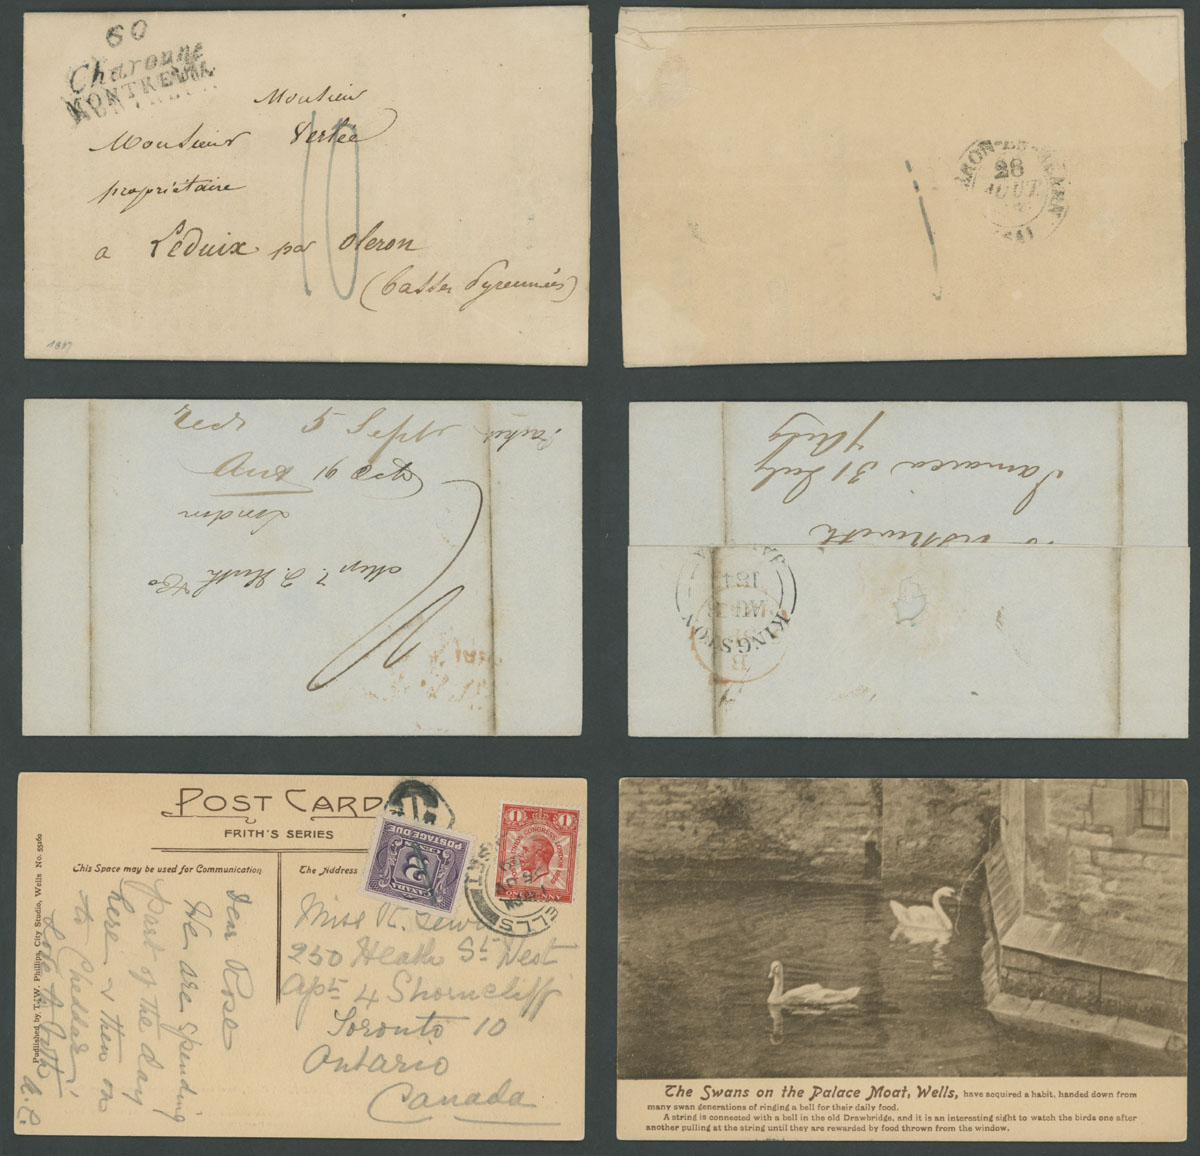 60
Charonne
MONTREUIL
Monsieur
Monsieur Verlié
propriétaire
a Léduix par Oleron
(Basses Pyrennées)
10
28
AOUT
(64)
Recd 5 Sept
Ansd 16 Octr
London
Messrs F. Huth & Co
Packet
Jamaica 31 July
KINGSTON
JAMAICA
184
AU
B
POST CARD
FRITH'S SERIES
This Space may be used for Communication
The Address
Published by T. W. Phillips, City Studio, Wells No. 55160
Dear Rose
We are spending
part of the day
here & then on
to Cheddar.
Love to both
A.C.
Miss R. Lewis
250 Heath St West
Apt 4 Shorncliff
Toronto 10
Ontario
Canada
CANADA
2
POSTAGE DUE
1 1
POSTAL UNION CONGRESS LONDON 1929
WELLS
SOMERSET
The Swans on the Palace Moat, Wells, have acquired a habit, handed down from
many swan generations of ringing a bell for their daily food.
A string is connected with a bell in the old Drawbridge, and it is an interesting sight to watch the birds one after
another pulling at the string until they are rewarded by food thrown from the window.